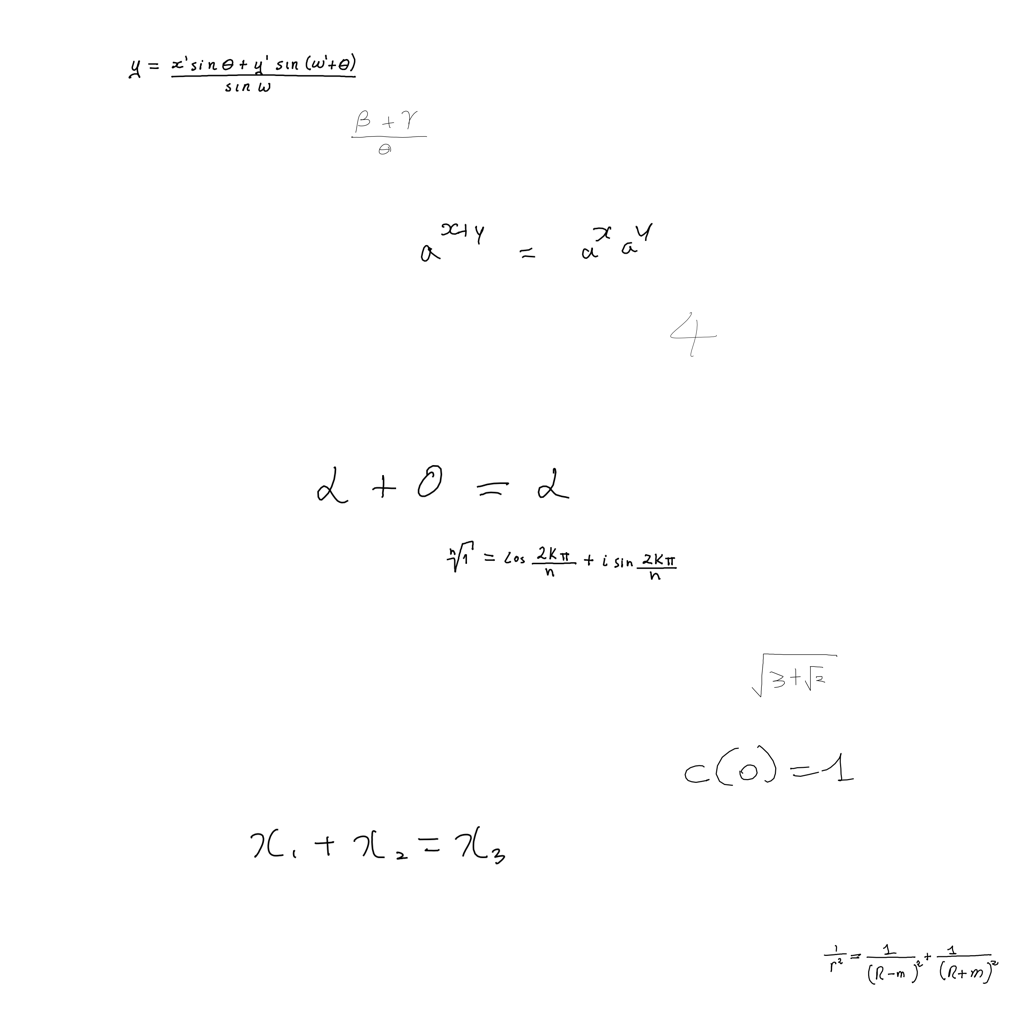 y = \frac{x' \sin \theta + y' \sin (\omega' + \theta)}{\sin \omega}
\frac{\beta + \gamma}{\theta}
a^{x+y} = a^x a^y
4
\alpha + 0 = \alpha
\sqrt[n]{1} = \cos \frac{2k\pi}{n} + i \sin \frac{2k\pi}{n}
\sqrt{3 + \sqrt{2}}
c(0) = 1
x_1 + x_2 = x_3
\frac{1}{r^2} = \frac{1}{(R-m)^2} + \frac{1}{(R+m)^2}